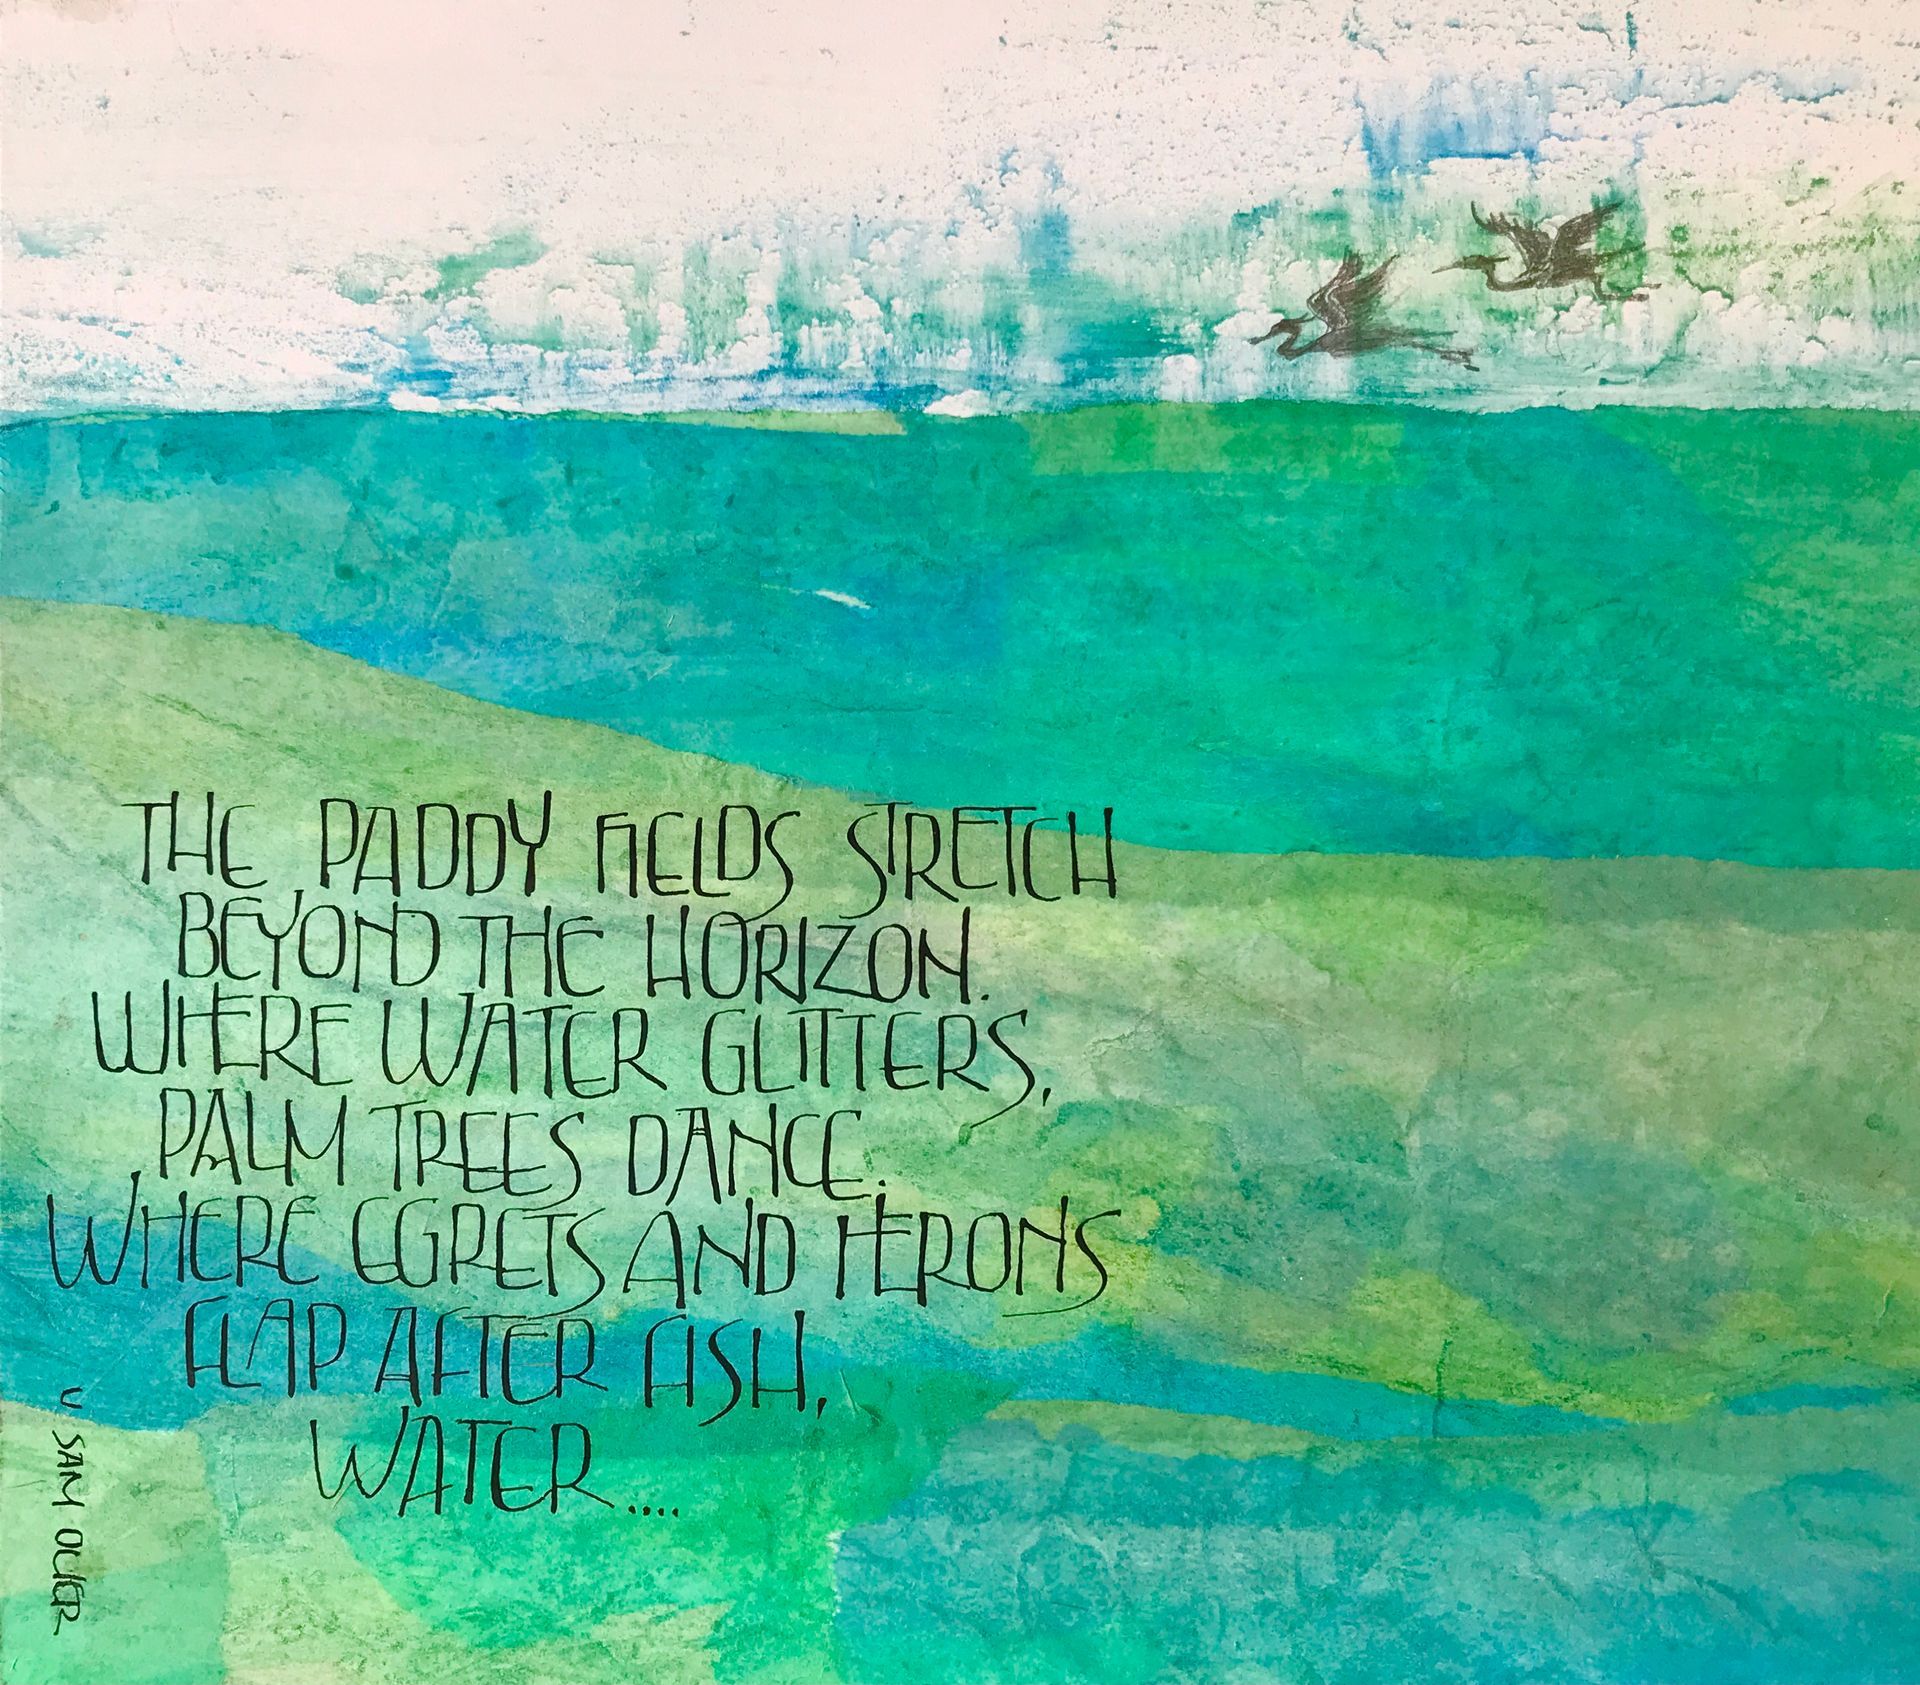 THE PADDY FIELDS STRETCH
BEYOND THE HORIZON.
WHERE WATER GLITTERS,
PALM TREES DANCE.
WHERE EGRETS AND HERONS
FLAP AFTER FISH,
WATER....
U SAM OUER